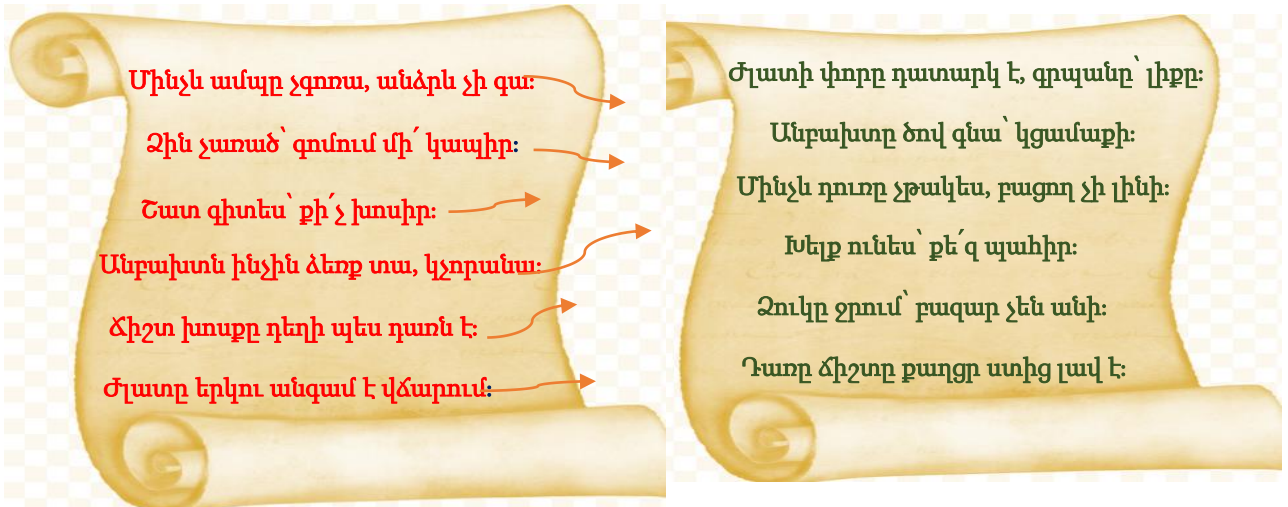 Մինչև ամպը չգոռա, անձրև չի գա:
Ձին չառած՝ գոմում մի՛ կապիր:
Շատ գիտես՝ քի՛չ խոսիր:
Անբախտն ինչին ձեռք տա, կչորանա:
Ճիշտ խոսքը դեղի պես դառն է:
Ժլատը երկու անգամ է վճարում:
Ժլատի փորը դատարկ է, գրպանը՝ լիքը:
Անբախտը ծով գնա՝ կցամաքի:
Մինչև դուռը չթակես, բացող չի լինի:
Խելք ունես՝ քե՛զ պահիր:
Ձուկը ջրում՝ բազար չեն անի:
Դառը ճիշտը քաղցր ստից լավ է: